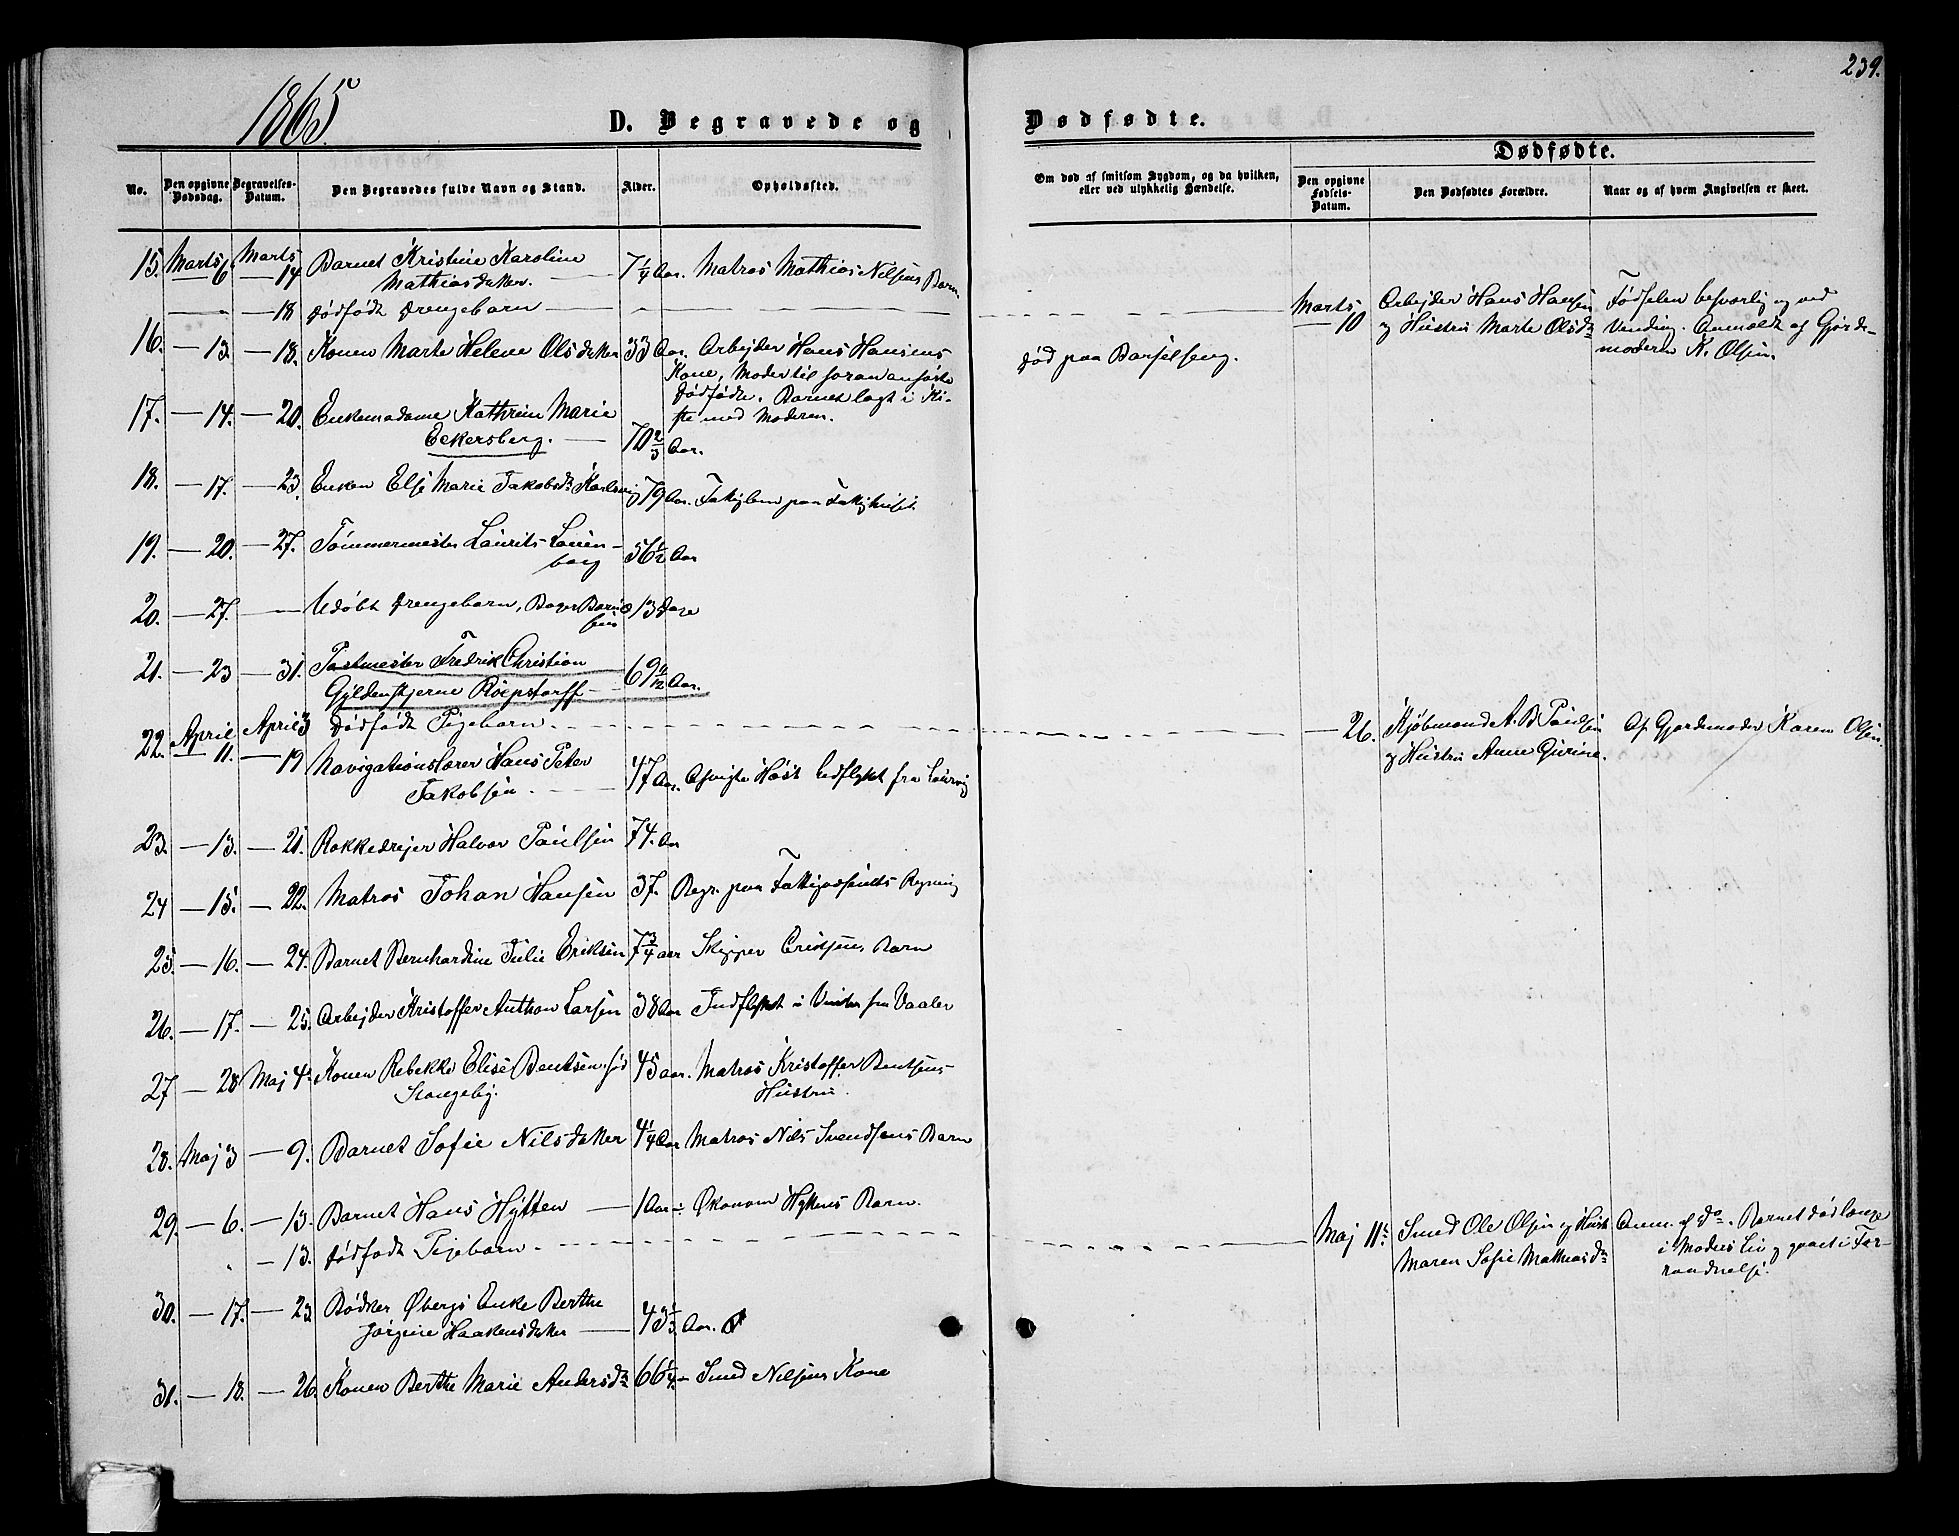 239.
1865.
D. Begravede og Dødfødte.
Dødfødte.
No. Den opgivne Dødsdag. Begravelses-Datum. Den Begravedes fulde Navn og Stand. Alder. Opholdssted. Om død af smitsom Sygdom, og da hvilken, eller ved ulykkelig Hændelse. Den opgivne Fødsels-Datum. Den Dødfødtes Forældre. Naar og af hvem Angivelsen er skeet.
15. Marts 6. Marts 14 Barnet Kristine Karoline 7 1/4 Aar. Matros Mathias Nilsens Barn
Mathiasdatter.
— — 18 Dødfødt Drengebarn — Marts 10 Arbejder Hans Hansen Fødselen besværlig og ved
og Hustru Marte Olsdr Vending. Anmeldt af Gjorde-
moderen K. Olsen.
16. — 13. — 18. Konen Marte Helene Olsdatter 33 Aar. Arbejder Hans Hansens død paa Barselseng.
Kone, Moder til foran anførte
Dødfødte. Barnet lagt i Ki-
ste med Moderen.
17. — 14. — 20. Enkemadame Kathrine Marie
Eckersberg. — 70 2/3 Aar.
18. — 17. — 23. Enken Else Marie Jakobsdr Karlsvig 79 Aar. Fattiglem paa Fattighuset.
19. — 20. — 27. Tømmermester Laurits Lauen-
borg 56 1/2 Aar
20. — 27. — Udøbt Drengebarn, Bager 13 Dage
21. — 23 — 31. Postmester Fredrik Christian
Gyldenstjerne Roepstorff — 69 Aar.
April 3 Dødfødt Pigebarn. — — 26. Kjøbmand A. B. Paulsen Af Gjordemoder Karen Olsen.
og Hustru Anne Gurine.
22. April 11. — 19 Navigationslærer Hans Peter 47 Aar. Afvigte Høst indflyttet fra Laurvig
Jakobsen.
23. — 13. — 21. Rokkedrejer Halvor Paulsen 74. Aar
24 — 15. — 22. Matros Johan Hansen 37. Begr. paa Fattigvæsenets Regning
25. — 16. — 24. Barnet Bernhardine Julie Eriksen 7 3/4 aar Skipper Eriksens Barn
26. — 17. — 25. Arbejder Kristoffer Anthon Larsen 38 Aar Indflyttet i Vinter fra Vaaler
27 — 28 Maj 4. Konen Rebekka Elise Bentsen, fød 45 aar. Matros Kristoffer Bentsens
Stangeby. Hustru.
28. Maj 3 — 9. Barnet Sofie Nilsdatter 4 1/4 Aar Matros Nils Svendsens Barn
29. — 6. — 13. Barnet Hans Hytten — 1 Aar Økonom Hyttens Barn.
— 13. Dødfødt Pigebarn. — Maj 11. Smed Ole Olsen og Hustr. Anm. af do. Barnet død længe
Maren Sofie Mathiasdr i Moders Liv og gaaet i For-
raadnelse.
30. — 17. — 23 Bødker Øbergs Enke Berthe
Jørgine Haakensdatter — 43 1/3 Aar.
31. — 18. — 26. Konen Berthe Marie Andersdr 66 1/4 — Smed Nilsens Kone